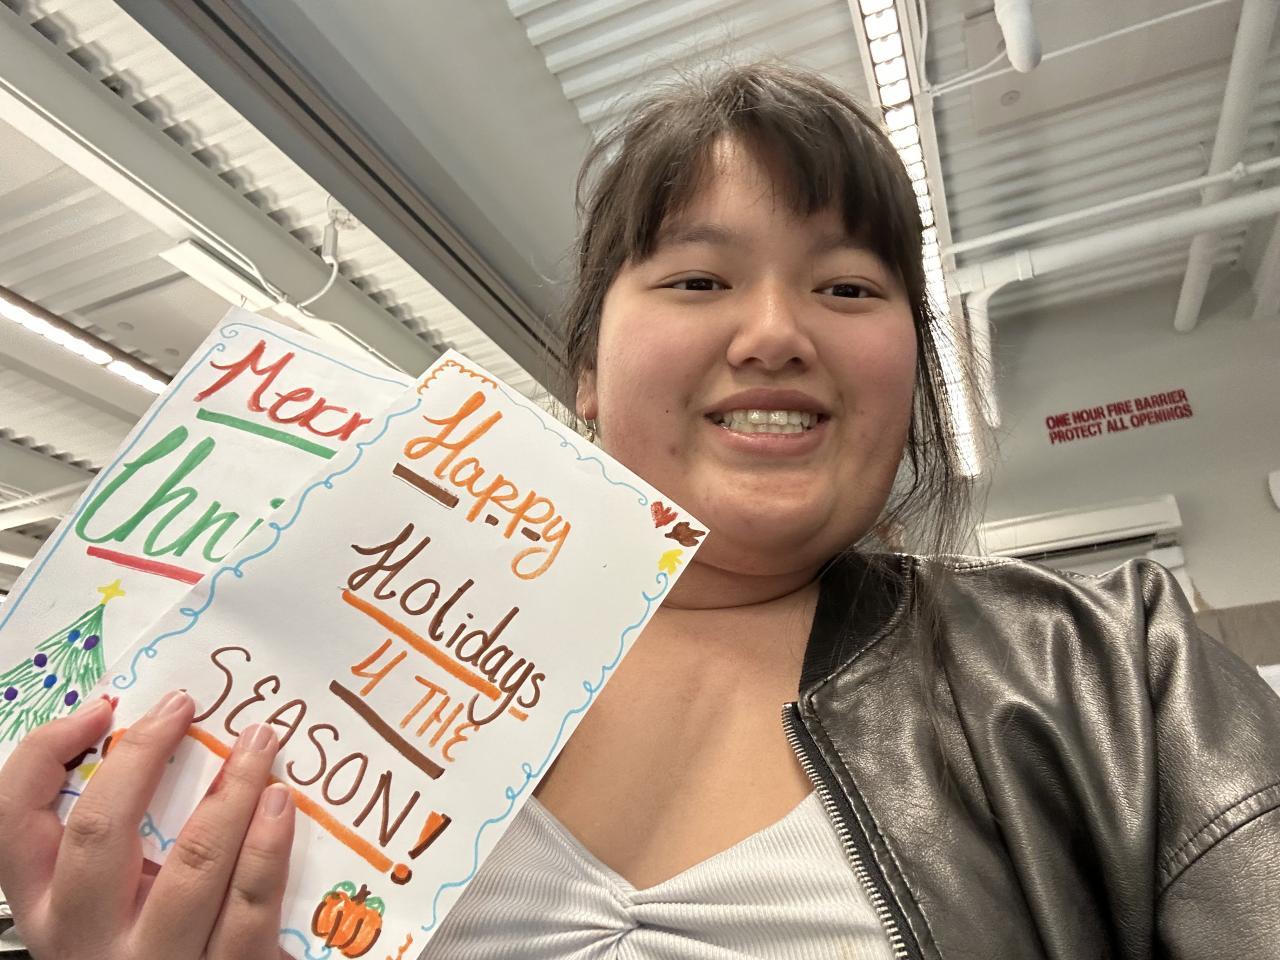 Merr
Chri
Happy
Holidays
4 THE
SEASON!
ONE HOUR FIRE BARRIER
PROTECT ALL OPENINGS